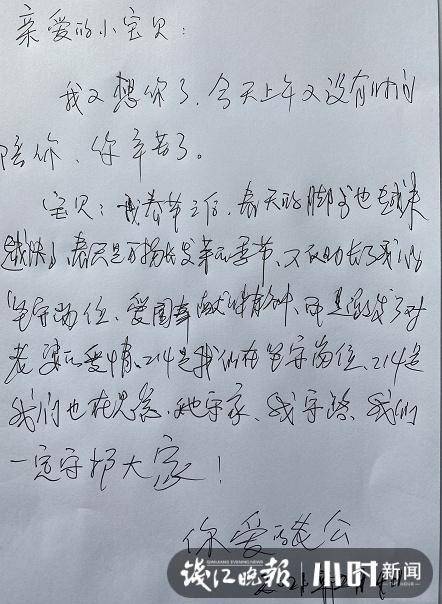 亲爱的小宝贝：
我又想你了，今天上午又没有时间
陪你，你辛苦了。
宝贝：春节之后，春天的脚步也越来
越快，春天是万物生发的季节，又助长了我们
坚守岗位、爱国奉献精神，对
老婆的爱情，214是我们在坚守岗位，214是
我们也在思念，她守家，我守路，我们
一定守护大家！
你爱的老公
钱江晚报 小时新闻
QIANJIANG EVENING NEWS